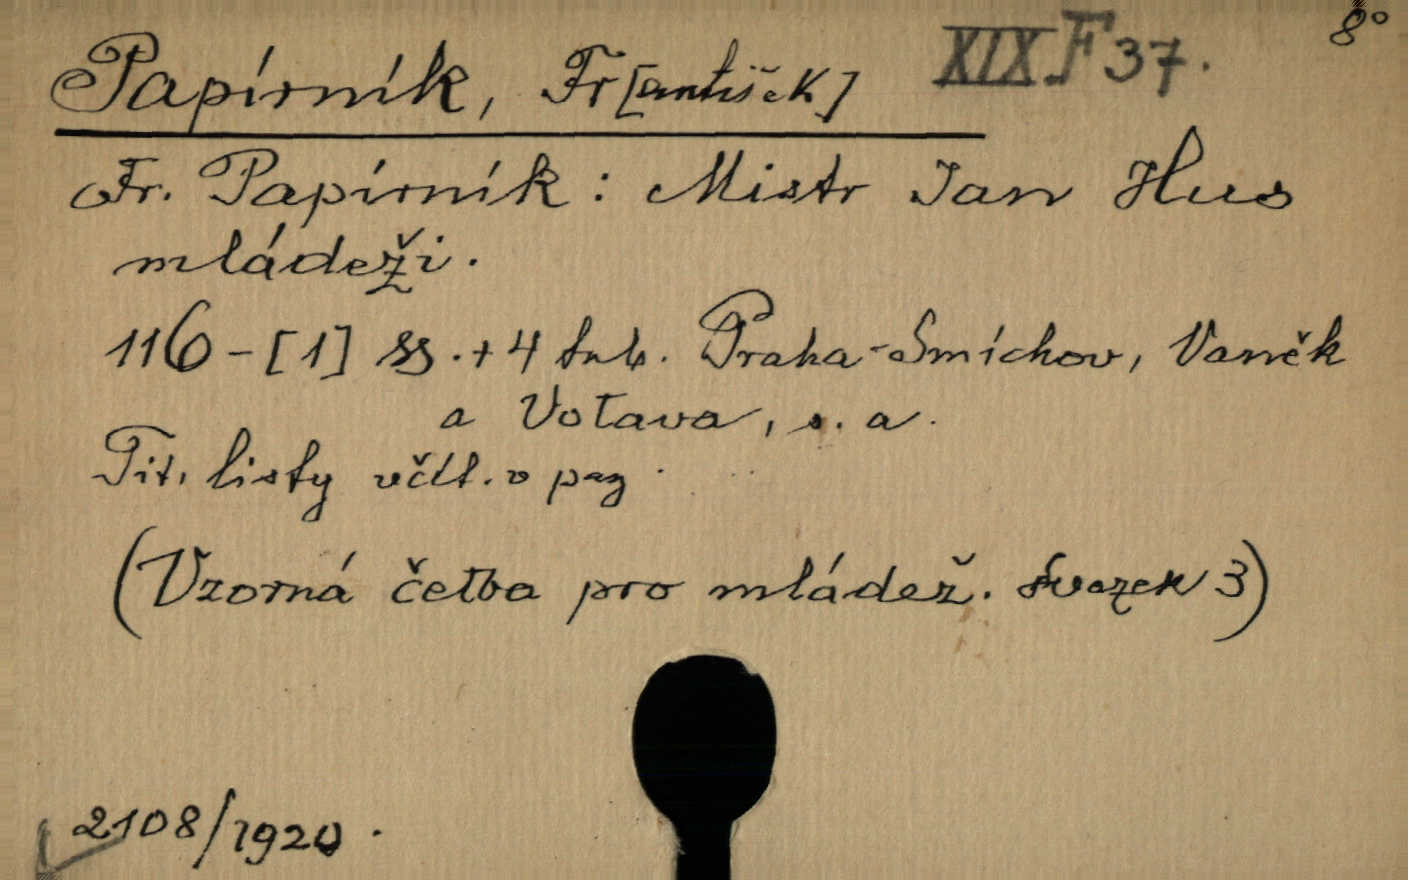 8°
XIX F 37.
Papírník, Fr[antišek]
Fr. Papírník: Mistr Jan Hus
mládeži.
116-[1] ss.+4 tab. Praha-Smíchov, Vaněk
a Votava, s. a.
Tit. listy včít. v pag.
(Vzorná četba pro mládež. Svazek 3)
2108/1920.